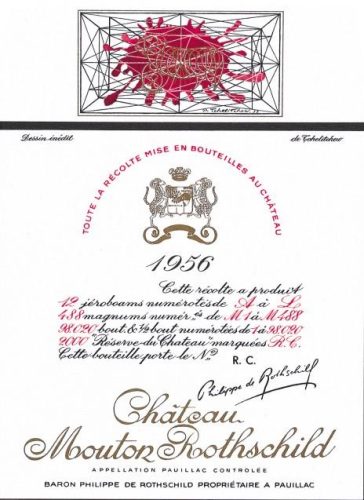 P. Tchelitchew 56
Dessin inédit de Tchelitchew
TOUTE LA RÉCOLTE MISE EN BOUTEILLES AU CHÂTEAU
1956
Cette récolte a produit
12 jéroboams numérotés de A à L
488 magnums numér. és de M1 à M488
98.020 bout. & ½ bout numérotées de 1 à 98.020
2000 "Réserve du Château" marquées R.C.
Cette bouteille porte le No
R. C.
Philippe de Rothschild
Château
Mouton Rothschild
APPELLATION PAUILLAC CONTROLÉE
BARON PHILIPPE DE ROTHSCHILD PROPRIÉTAIRE A PAUILLAC